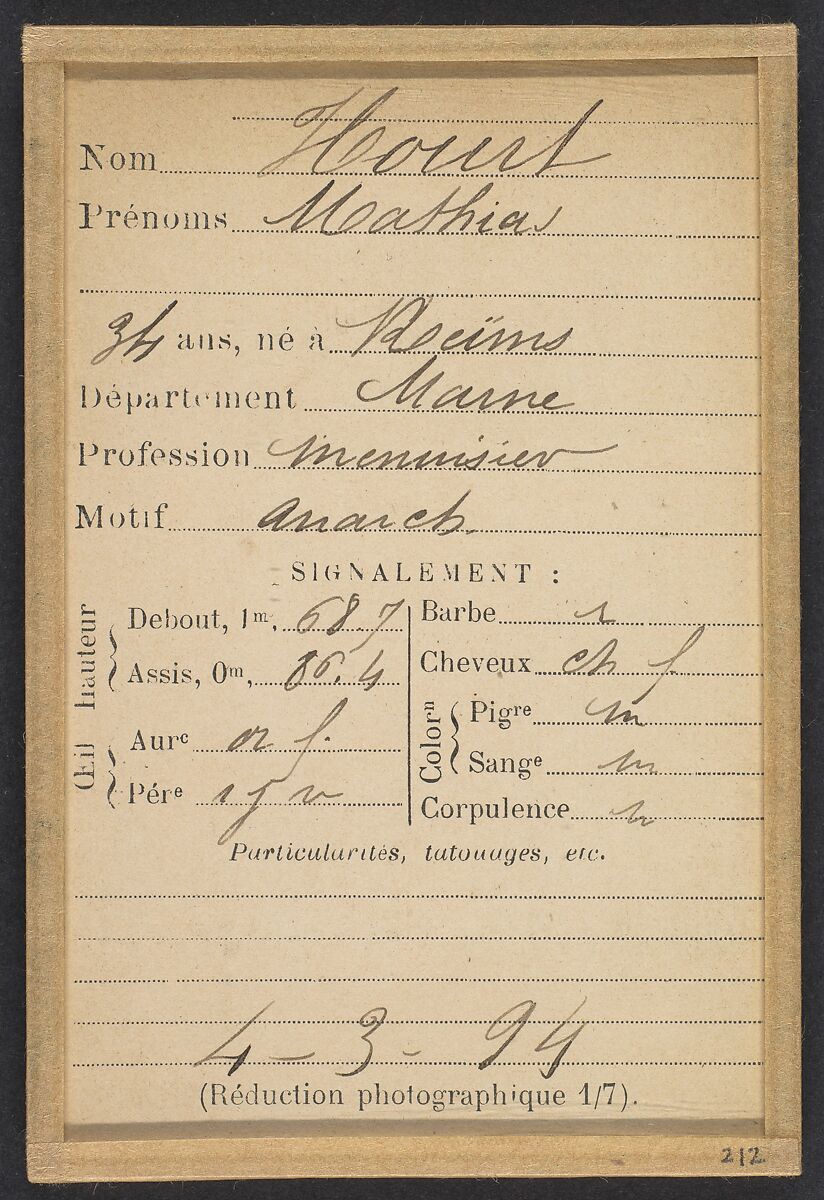 Nom Hourt
Prénoms Mathias
34 ans, né à Reïms
Département Marne
Profession menuisier
Motif anarch.
SIGNALEMENT :
hauteur
Debout, 1m, 68.7
Assis, 0m, 86.4
Œil
Aurᶜ or f.
Pérᵉ
Barbe
Cheveux ch f
Colorⁿ
Pigʳᵉ m
Sangᵉ m
Corpulence
Particularités, tatouages, etc.
4 - 3 - 94
(Réduction photographique 1/7).
212